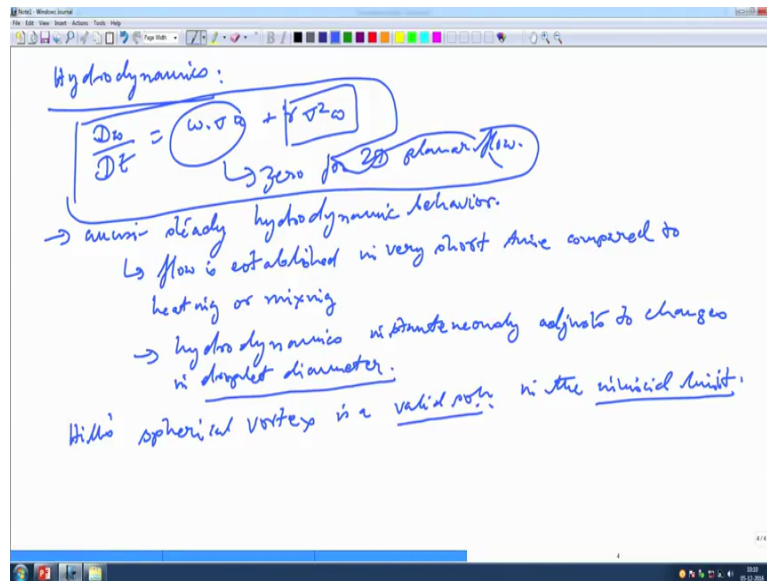 Note1 - Windows Journal
File Edit View Insert Actions Tools Help
Page Width
Hydrodynamics:
Dω/Dt = ω.∇u + γ∇²ω
↳ zero for 2D planar flow.
→ quasi-steady hydrodynamic behavior.
↳ flow is established in very short time compared to
heating or mixing
→ hydrodynamics instantaneously adjusts to changes
in droplet diameter.
Hill's spherical vortex is a valid soln. in the inviscid limit.
4/4
4
10:10
05-12-2016